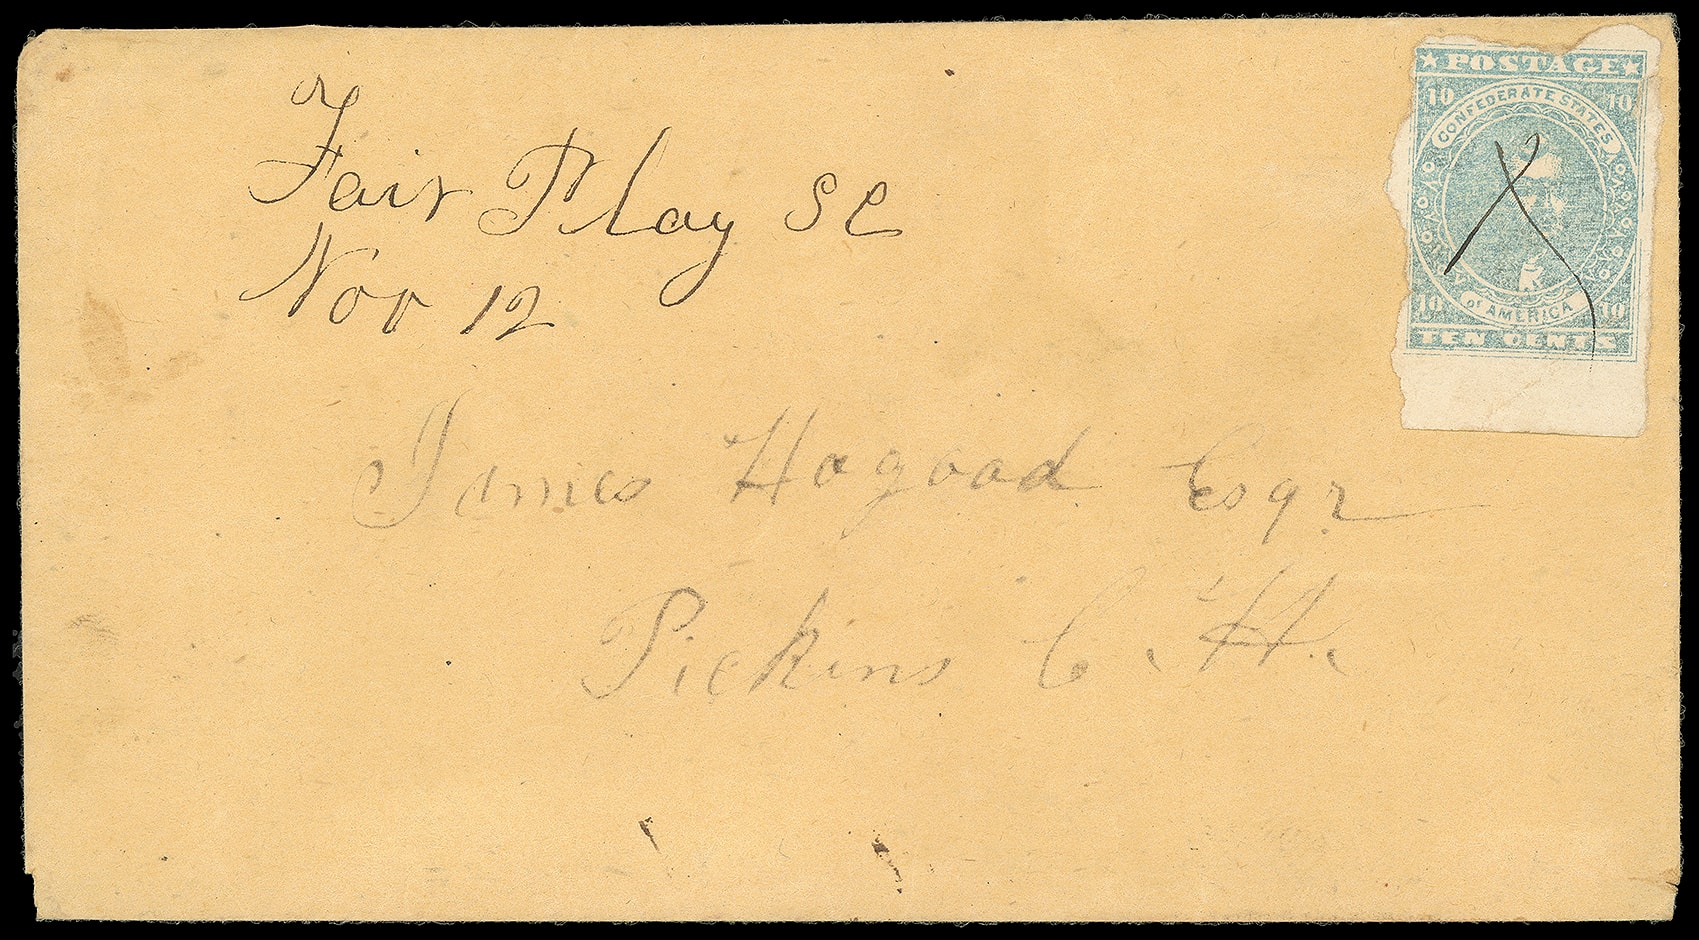 Fair Play SC
Nov 12
★POSTAGE★
10 10
CONFEDERATE STATES
OF AMERICA
10 10
TEN CENTS
James Hagood Esqr
Pickins C. H.